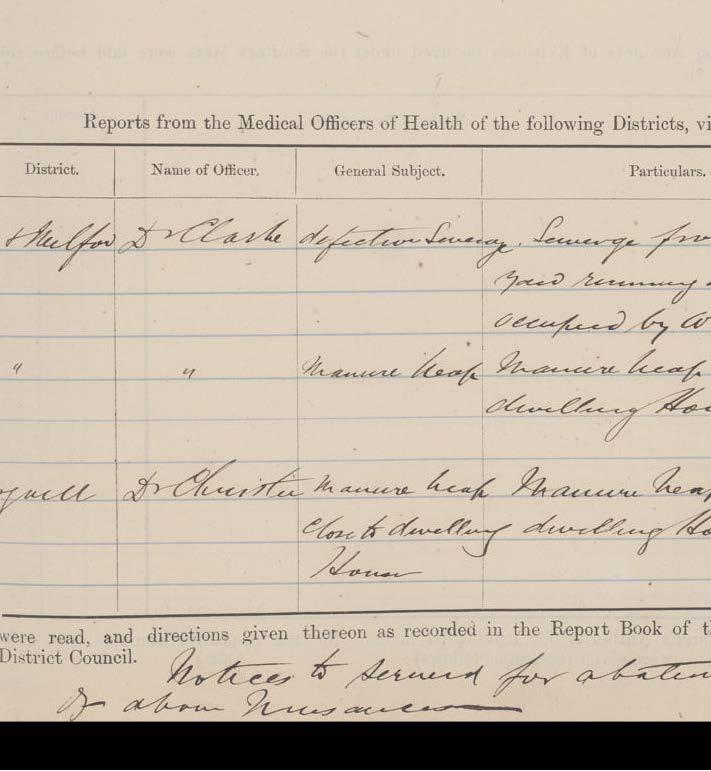 Reports from the Medical Officers of Health of the following Districts, vi
District. Name of Officer. General Subject. Particulars.
& Milfor Dr Clarke defective Sewerage. Sewerage fro
yard running
occupied by W
" " Manure heap Manure heap
dwelling Hou
Dr Christie Manure heap Manure heap
close to dwelling dwelling Ho
House
were read, and directions given thereon as recorded in the Report Book of th
District Council.
Notices to served for abatem
of above Nuisances